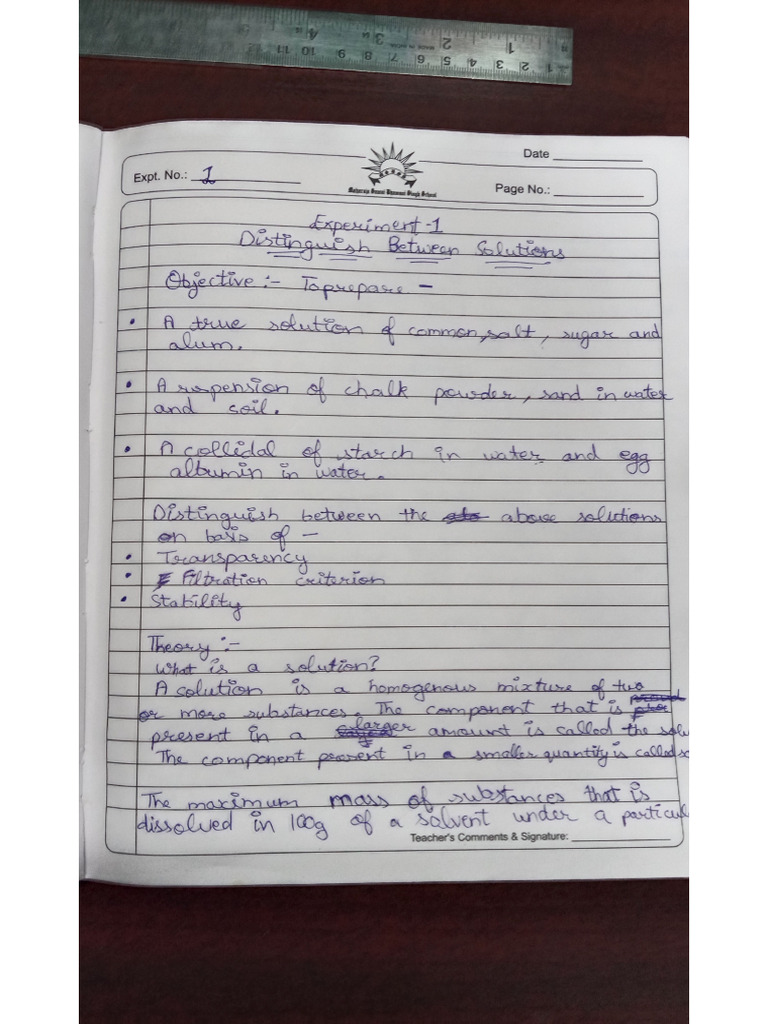 1 2 3 4
MADE IN INDIA
1 2 3 4 5 6 7 8 9 10 11
Date
Expt. No.: 1
Maharaja Sawai Bhawani Singh School
Page No.:
Experiment-1
Distinguish Between Solutions
Objective :- To prepare -
• A true solution of common, salt, sugar and
alum.
• A suspension of chalk powder, sand in water
and soil.
• A collidal of starch in water and egg
albumin in water.
Distinguish between the above solutions
on basis of -
• Transparency
• Filtration criterion
• Stability
Theory :-
What is a solution?
A solution is a homogenous mixture of two
or more substances. The component that is
present in a larger amount is called the solu
The component present in a smaller quantity is called so
The maximum mass of substances that is
dissolved in 100g of a solvent under a particul
Teacher's Comments & Signature: